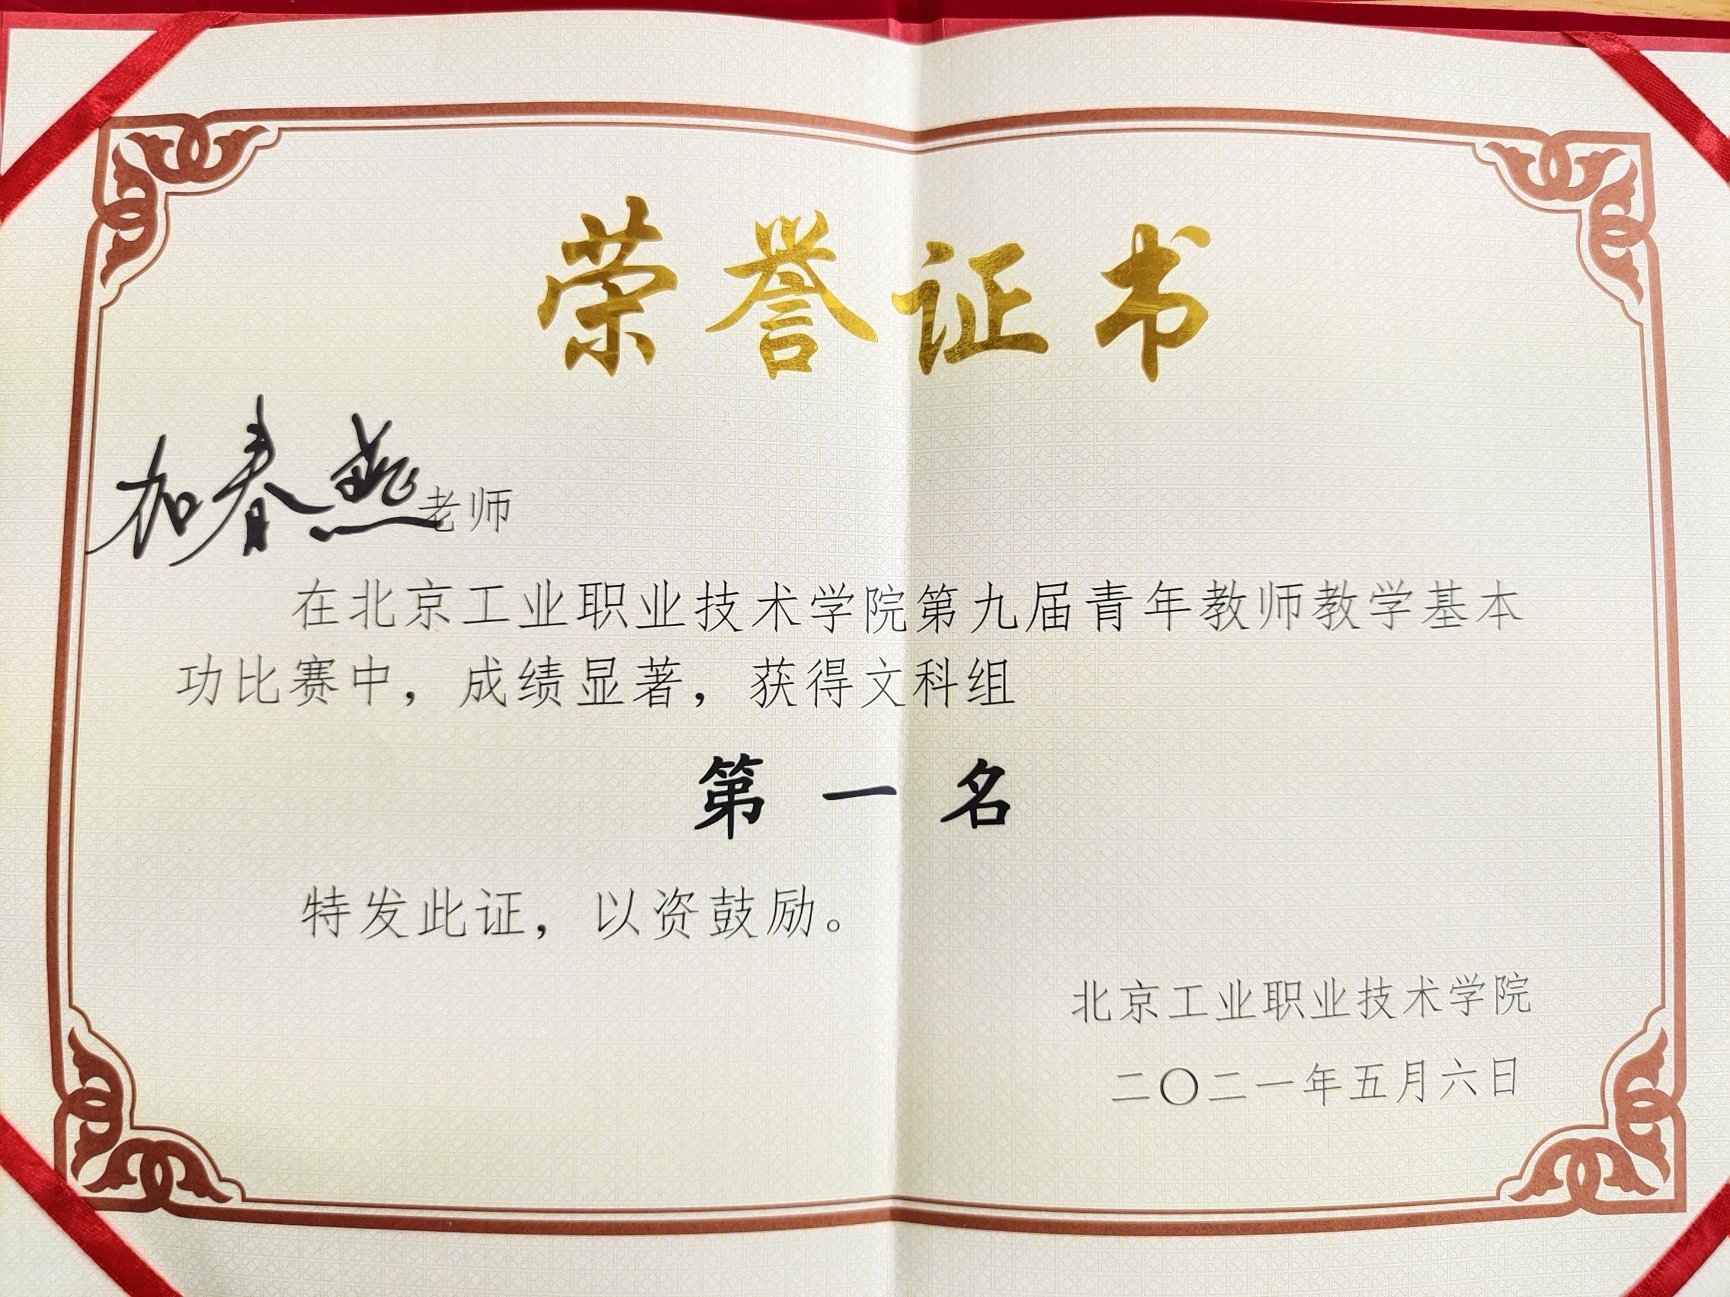 荣誉证书
加春燕老师
在北京工业职业技术学院第九届青年教师教学基本
功比赛中，成绩显著，获得文科组
第一名
特发此证，以资鼓励。
北京工业职业技术学院
二〇二一年五月六日